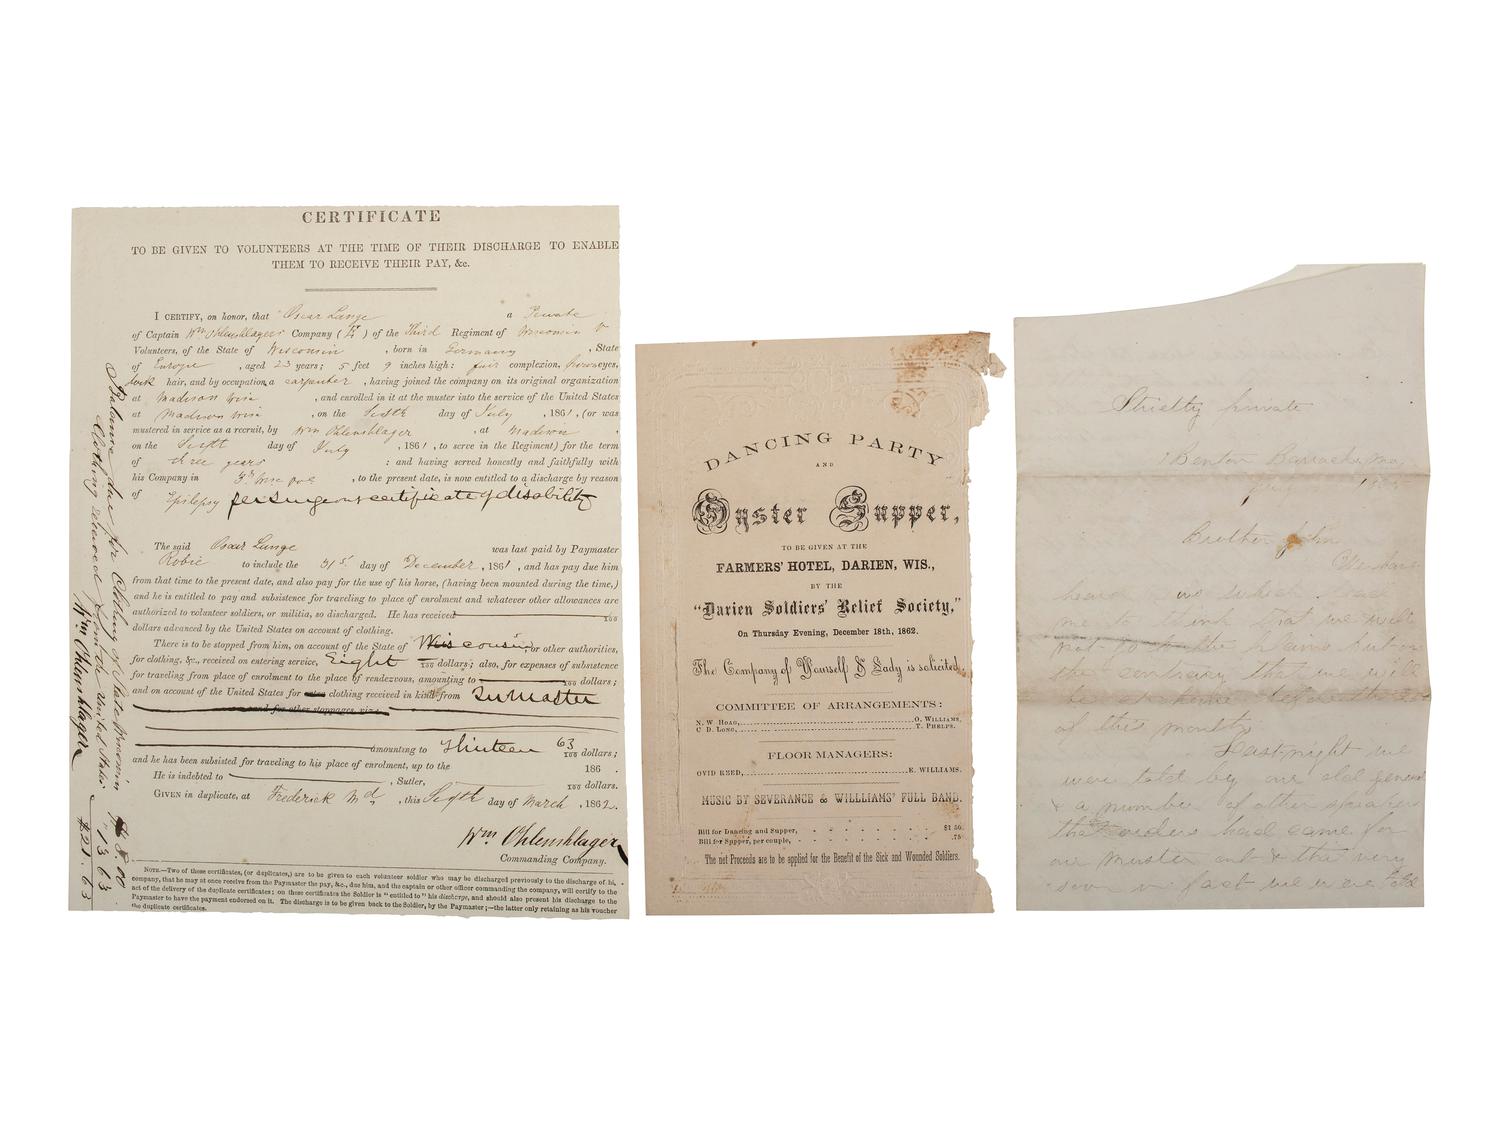 CERTIFICATE
TO BE GIVEN TO VOLUNTEERS AT THE TIME OF THEIR DISCHARGE TO ENABLE
THEM TO RECEIVE THEIR PAY, &c.
I CERTIFY, on honor, that Oscar Lunge a Private
of Captain Wm Ohlenshlager Company ( ) of the Third Regiment of Wisconsin V
Volunteers, of the State of Wisconsin , born in Germany , State
of Europe , aged 23 years; 5 feet 9 inches high: fair complexion, brown eyes,
dark hair, and by occupation a carpenter , having joined the company on its original organization
at Madison Wise , and enrolled in it at the muster into the service of the United States
at Madison Wise , on the Sixth day of July , 1861, (or was
mustered in service as a recruit, by Wm Ohlenshlager , at Madison ,
on the Sixth day of July , 1861, to serve in the Regiment) for the term
of three years : and having served honestly and faithfully with
his Company in 3rd Wisc , to the present date, is now entitled to a discharge by reason
of Epilepsy per Surgeons certificate of disability
The said Oscar Lunge was last paid by Paymaster
Robie to include the 31st day of December , 1861, and has pay due him
from that time to the present date, and also pay for the use of his horse, (having been mounted during the time,)
and he is entitled to pay and subsistence for traveling to place of enrolment and whatever other allowances are
authorized to volunteer soldiers, or militia, so discharged. He has received 100
dollars advanced by the United States on account of clothing.
There is to be stopped from him, on account of the State of Wisconsin, or other authorities,
for clothing, &c., received on entering service, Eight 100 dollars; also, for expenses of subsistence
for traveling from place of enrolment to the place of rendezvous, amounting to 100 dollars;
and on account of the United States for clothing received in kind from
and for other stoppages, viz:
amounting to Thirteen 63 100 dollars;
and he has been subsisted for traveling to his place of enrolment, up to the 186 .
He is indebted to , Sutler, 100 dollars.
GIVEN in duplicate, at Frederick Md , this Sixth day of March , 1862.
Wm Ohlenshlager
Commanding Company.
NOTE.—Two of these certificates, (or duplicates,) are to be given to each volunteer soldier who may be discharged previously to the discharge of his
company, that he may at once receive from the Paymaster the pay, &c., due him, and the captain or other officer commanding the company, will certify to the
act of the delivery of the duplicate certificates; on these certificates the Soldier is "entitled to" his discharge, and should also present his discharge to the
Paymaster to have the payment endorsed on it. The discharge is to be given back to the Soldier, by the Paymaster;—the latter only retaining as his voucher
the duplicate certificates.
Balance due for Clothing of State Wisconsin $8.00
Clothing drawed from the United States " 13 63
Wm Ohlenshlager $21.63
DANCING PARTY
AND
Oyster Supper,
TO BE GIVEN AT THE
FARMERS' HOTEL, DARIEN, WIS.,
BY THE
"Darien Soldiers' Relief Society,"
On Thursday Evening, December 18th, 1862.
The Company of Yourself & Lady is solicited.
COMMITTEE OF ARRANGEMENTS:
N. W HOAG, O. WILLIAMS,
C D. LONG, T. PHELPS.
FLOOR MANAGERS:
OVID REED, E. WILLIAMS.
MUSIC BY SEVERANCE & WILLLIAMS' FULL BAND.
Bill for Dancing and Supper, $1 50
Bill for Supper, per couple, .75
The net Proceeds are to be applied for the Benefit of the Sick and Wounded Soldiers.
Strictly private
Benton Barracks, Mo,
Brother John
me to think that we will
not go the plains but on
the contrary that we will
be at home before the
of the month
Last night we
were told by our old general
& a number of other speakers
that orders had came for
our muster out & that very
soon in fact we were told